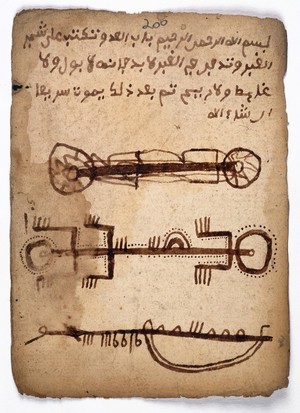 200
بسم الله الرحمن الرحيم باب العدو تكتب على شبر
القبر و تدفن في القبر لا بد فانه لا بول ولا
غايط ولا ريح ثم بعد ذلك يموت سريعا
ان شاء الله